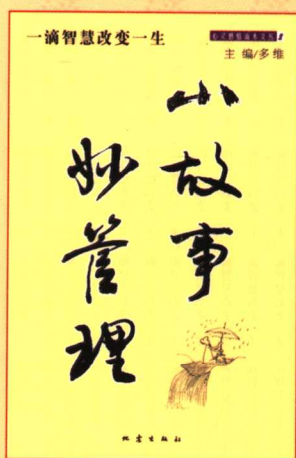 一滴智慧改变一生
主 编/多维
小故事
妙管理
地震出版社